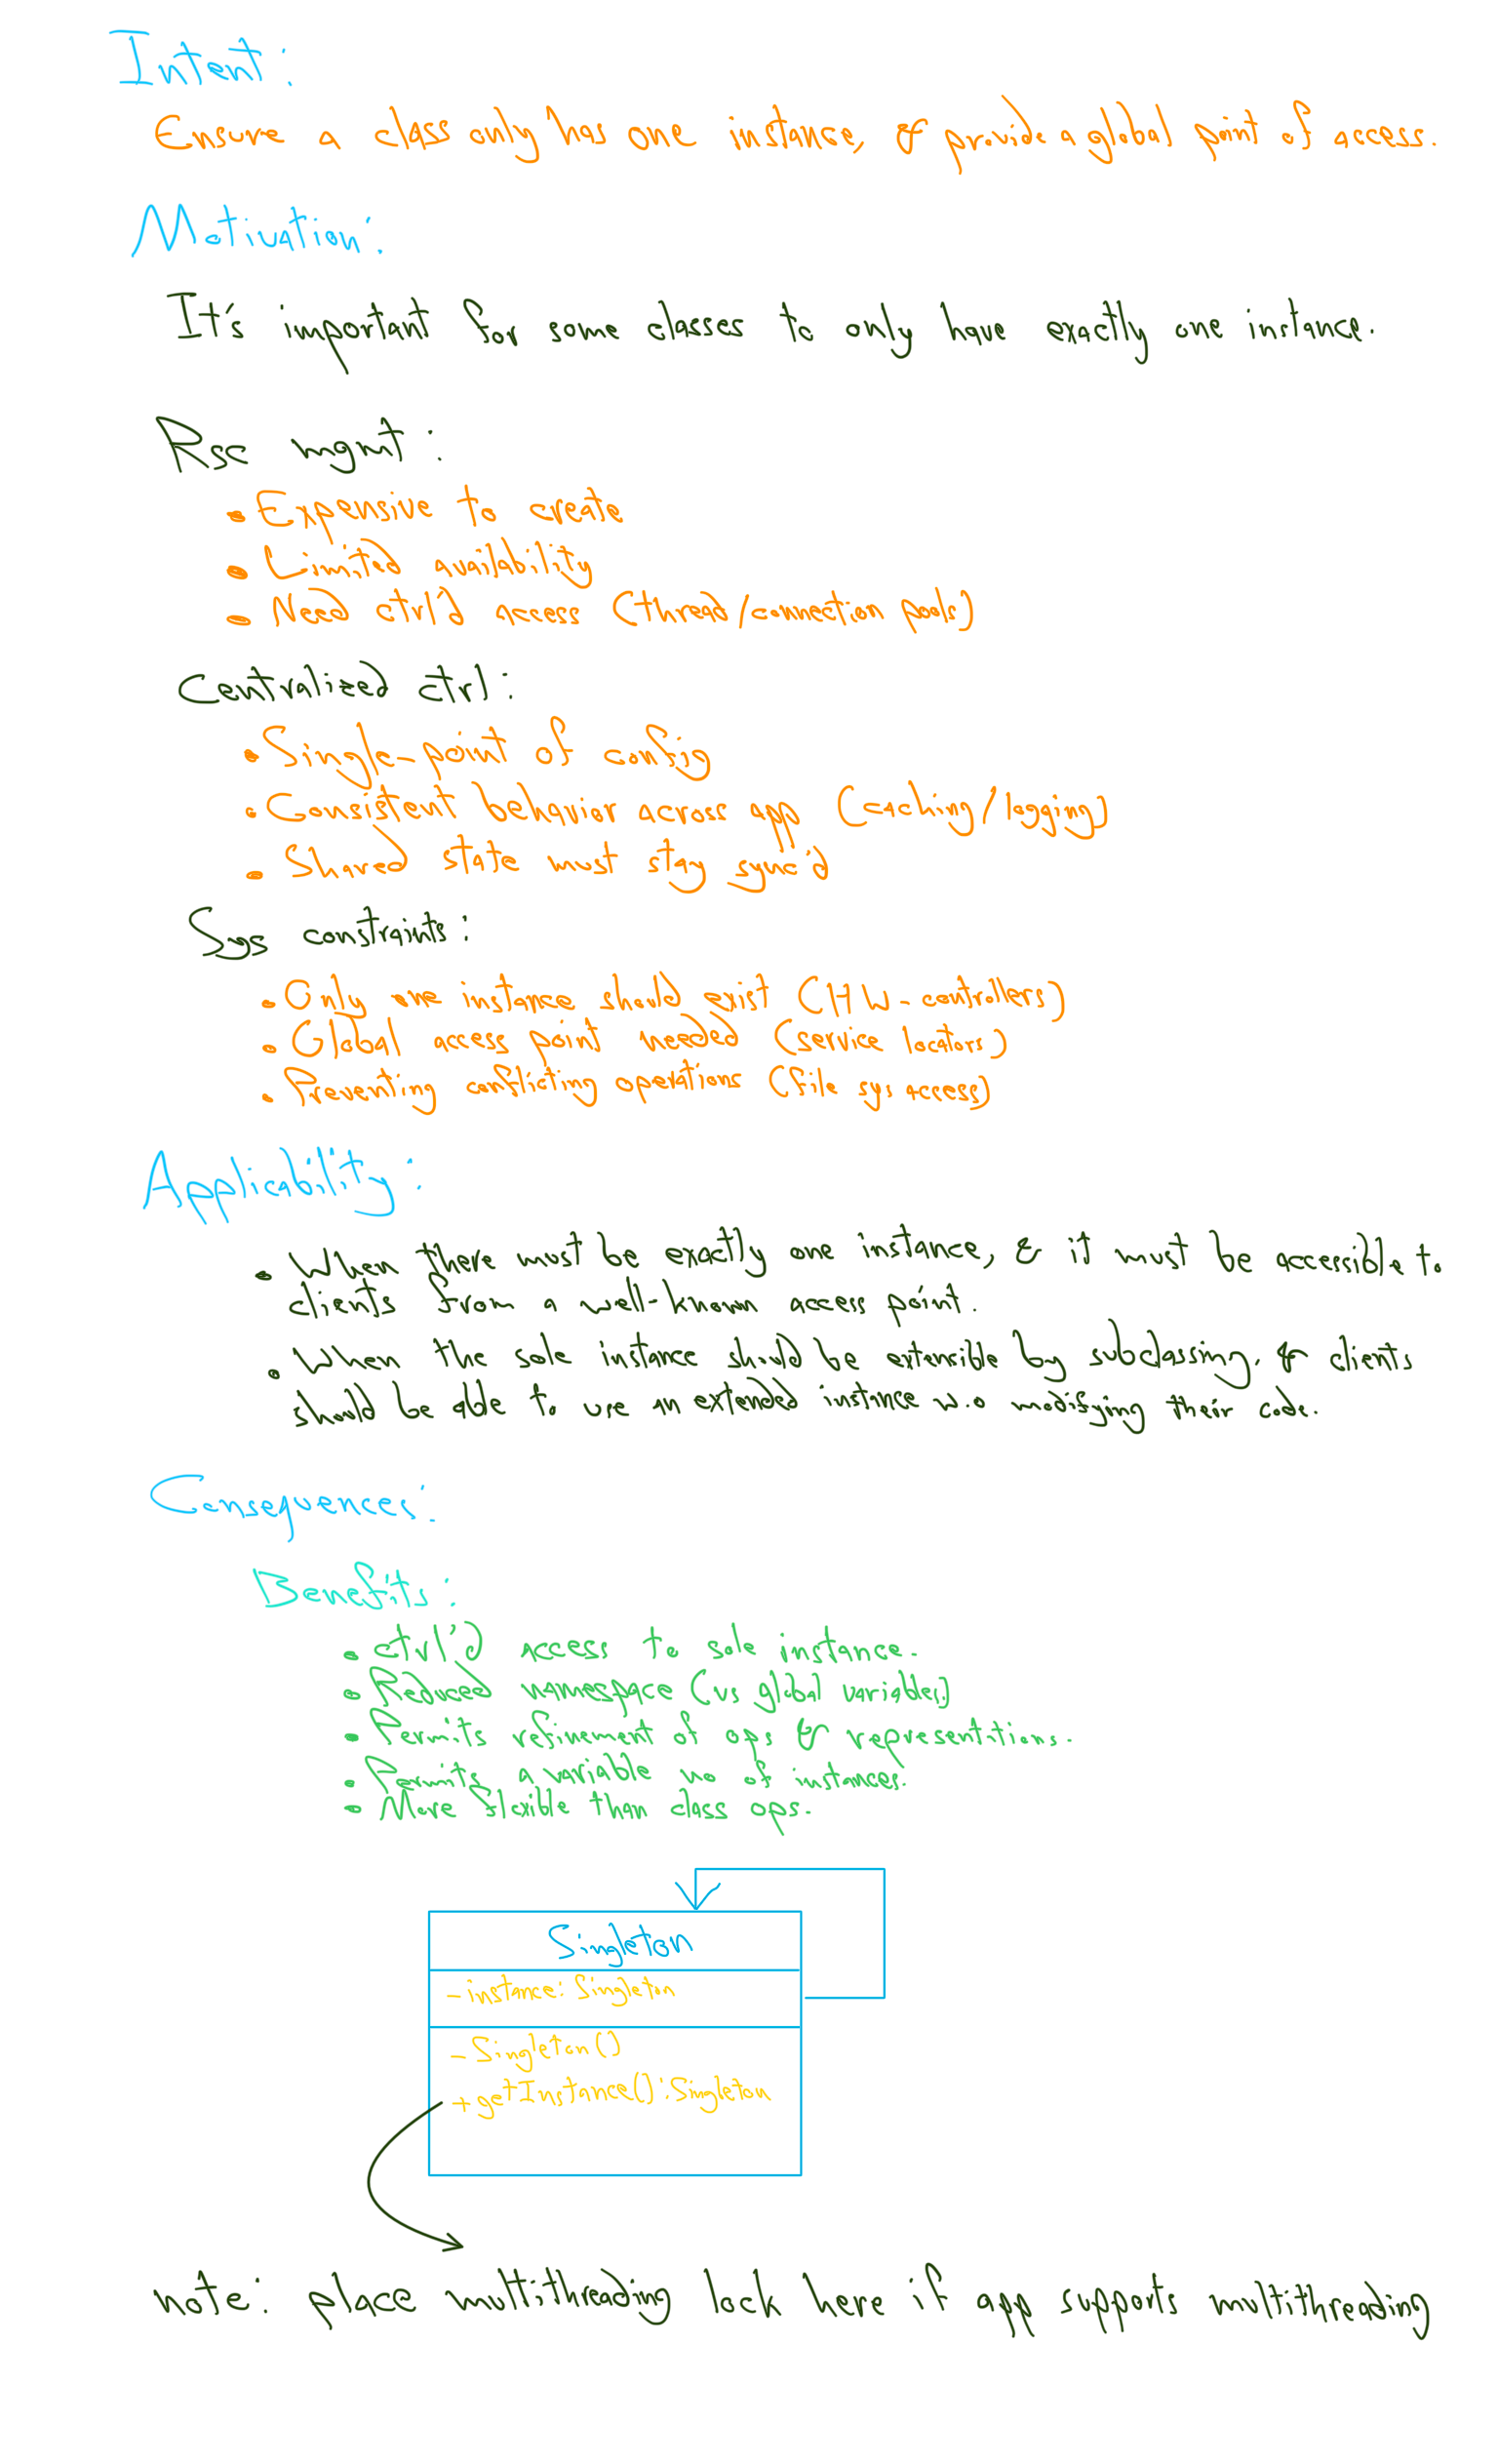 Intent:
Ensure a class only has one instance, & provide a global point of access.
Motivation:
It's important for some classes to only have exactly one instance.
Rsc mgmt:
• Expensive to create
• Limited availability
• Need ctrl'd access (thread/connection pools)
Centralized ctrl:
• Single-point of config
• Consistent behavior across app (caching/logging)
• Shared state must stay sync'd
Sys constraints:
• Only one instance should exist (HW-controllers)
• Global access point needed (service locators)
• Preventing conflicting operations (file sys access)
Applicability:
• When there must be exactly one instance, & it must be accessible to
clients from a well-known access point.
• When the sole instance should be extensible by subclassing, & clients
should be able to use an extended instance w.o modifying their code.
Consequences:
Benefits:
• ctrl'd access to sole instance.
• Reduced namespace (vs global variables)
• Permits refinement of ops & representitions.
• Permits a variable no of instances.
• More flexible than class ops.
Singleton
- instance: Singleton
- Singleton()
+ getInstance(): Singleton
note: place multithreading lock here if app supports multithreading